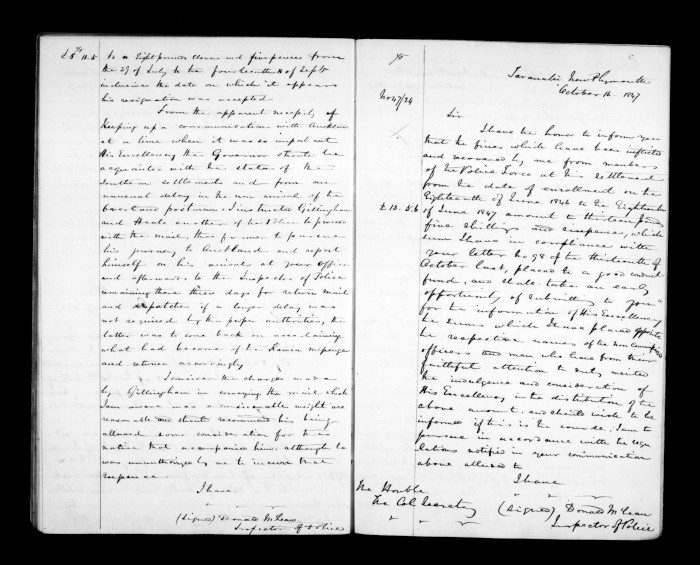 £8 " 11. 5 to a Eight pounds eleven and five pence from
the 29 of July to the fourteenth of Septr
inclusive the date on which it appears
his resignation was accepted
From the apparent necessity of
keeping up a communication with Auckland
at a time when it was so important
His Excellency the Governor should be
acquainted with the state of the
Southern settlement and from an
unusual delay in the non arrival of the
postman I instructed Gillingham
and another of the Police to proceed
with the mail, the former to pursue
his journey to Auckland and report
himself on his arrival at your office
and afterwards to the Inspector of Police
remaining there three days for return mail
and despatches if a longer delay was
not required by the proper authorities, the
latter was to come back on ascertaining
what had become of the Kawia messenger
and returned accordingly
I conceive the charges made
by Gillingham in conveying the mail which
I am aware was a considerable weight are
reasonable and should recommend his being
allowed some consideration for the
native that accompanied him although he
was unauthorized by me to incur that
expence
I have
" "
(Signed) Donald McLean
Inspector of Police
Taranaki New Plymouth
October 16 1847
No 47/24
Sir
I have the honor to inform you
that the fines which have been inflicted
and recovered by me from members
of the Police Force at this settlement
from the date of enrollment on the
Eighteenth of June 1846 to the Eighteenth
£ 13. 5. 6 of June 1847 amount to thirteen pounds
five shillings and sixpence, which
sum I have in compliance with
your letter No 98 of the thirteenth of
October last, placed to a good conduct
fund, and shall take an early
opportunity of submitting to you
for the information of His Excellency
the sums which I have placed opposite
the respective names of the non commissioned
officers and men who have from their
faithful attention to duty merited
the indulgence and consideration of
His Excellency in the distribution of the
above amount. and should wish to be
informed if this is the course I am to
pursue in accordance with the regu
lations notified in your communication
above alluded to
I have
" "
The Honble
The Col. Secretary (Signed) Donald McLean
" " Inspector of Police